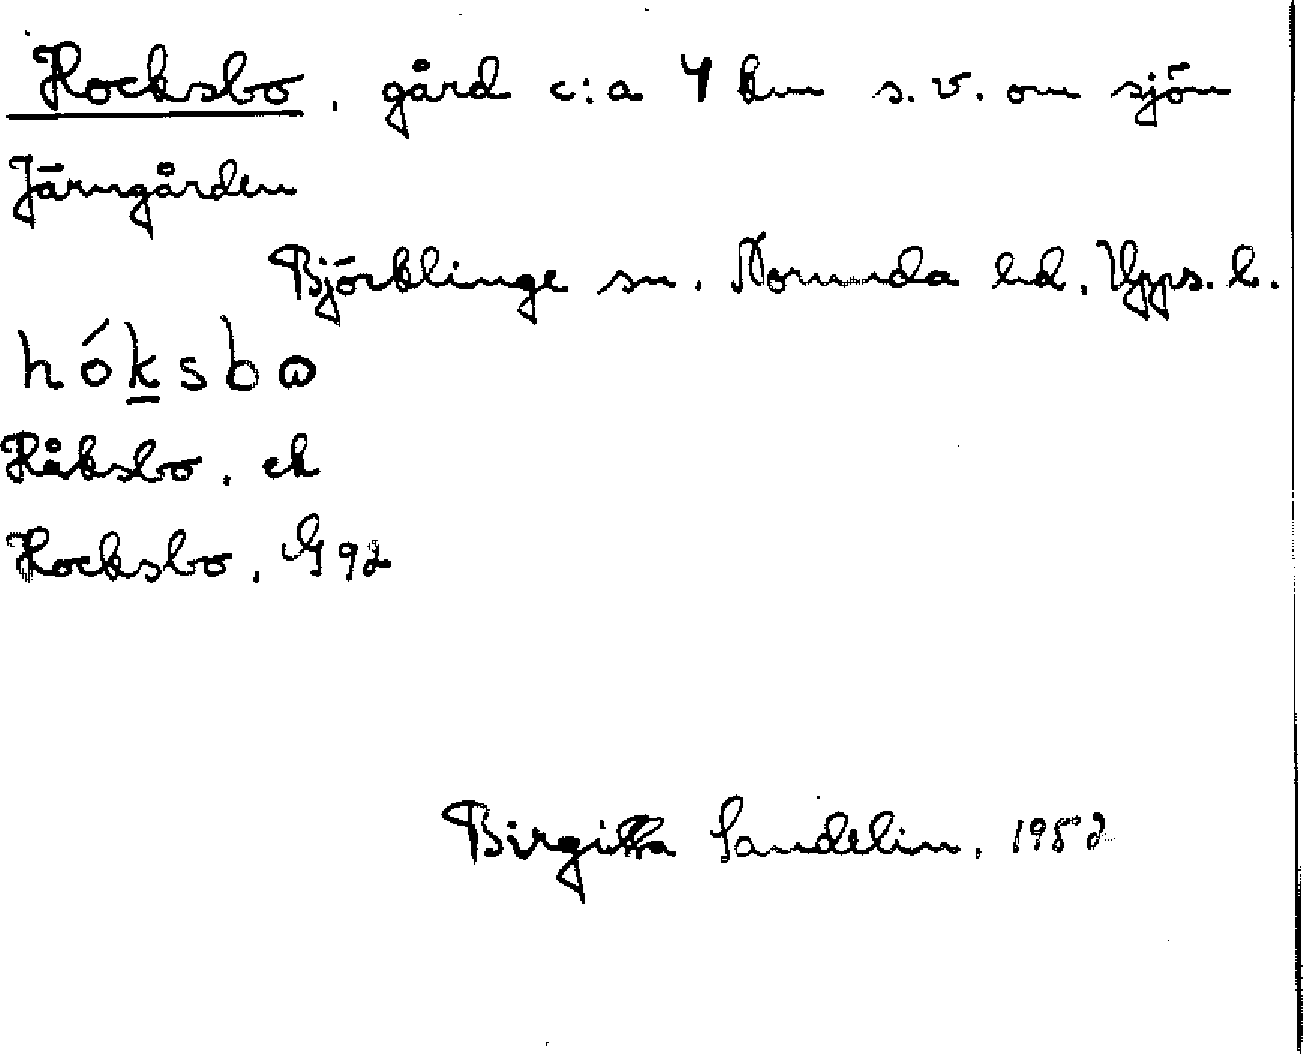 Hocksbo, gård c:a 4 km s.v. om sjön
Järngården
Björklinge sn. Norunda hd. Upps. l.
hóksbω
Håksbo, ek
Hocksbo, G 92
Birgitta Sandelin, 1952